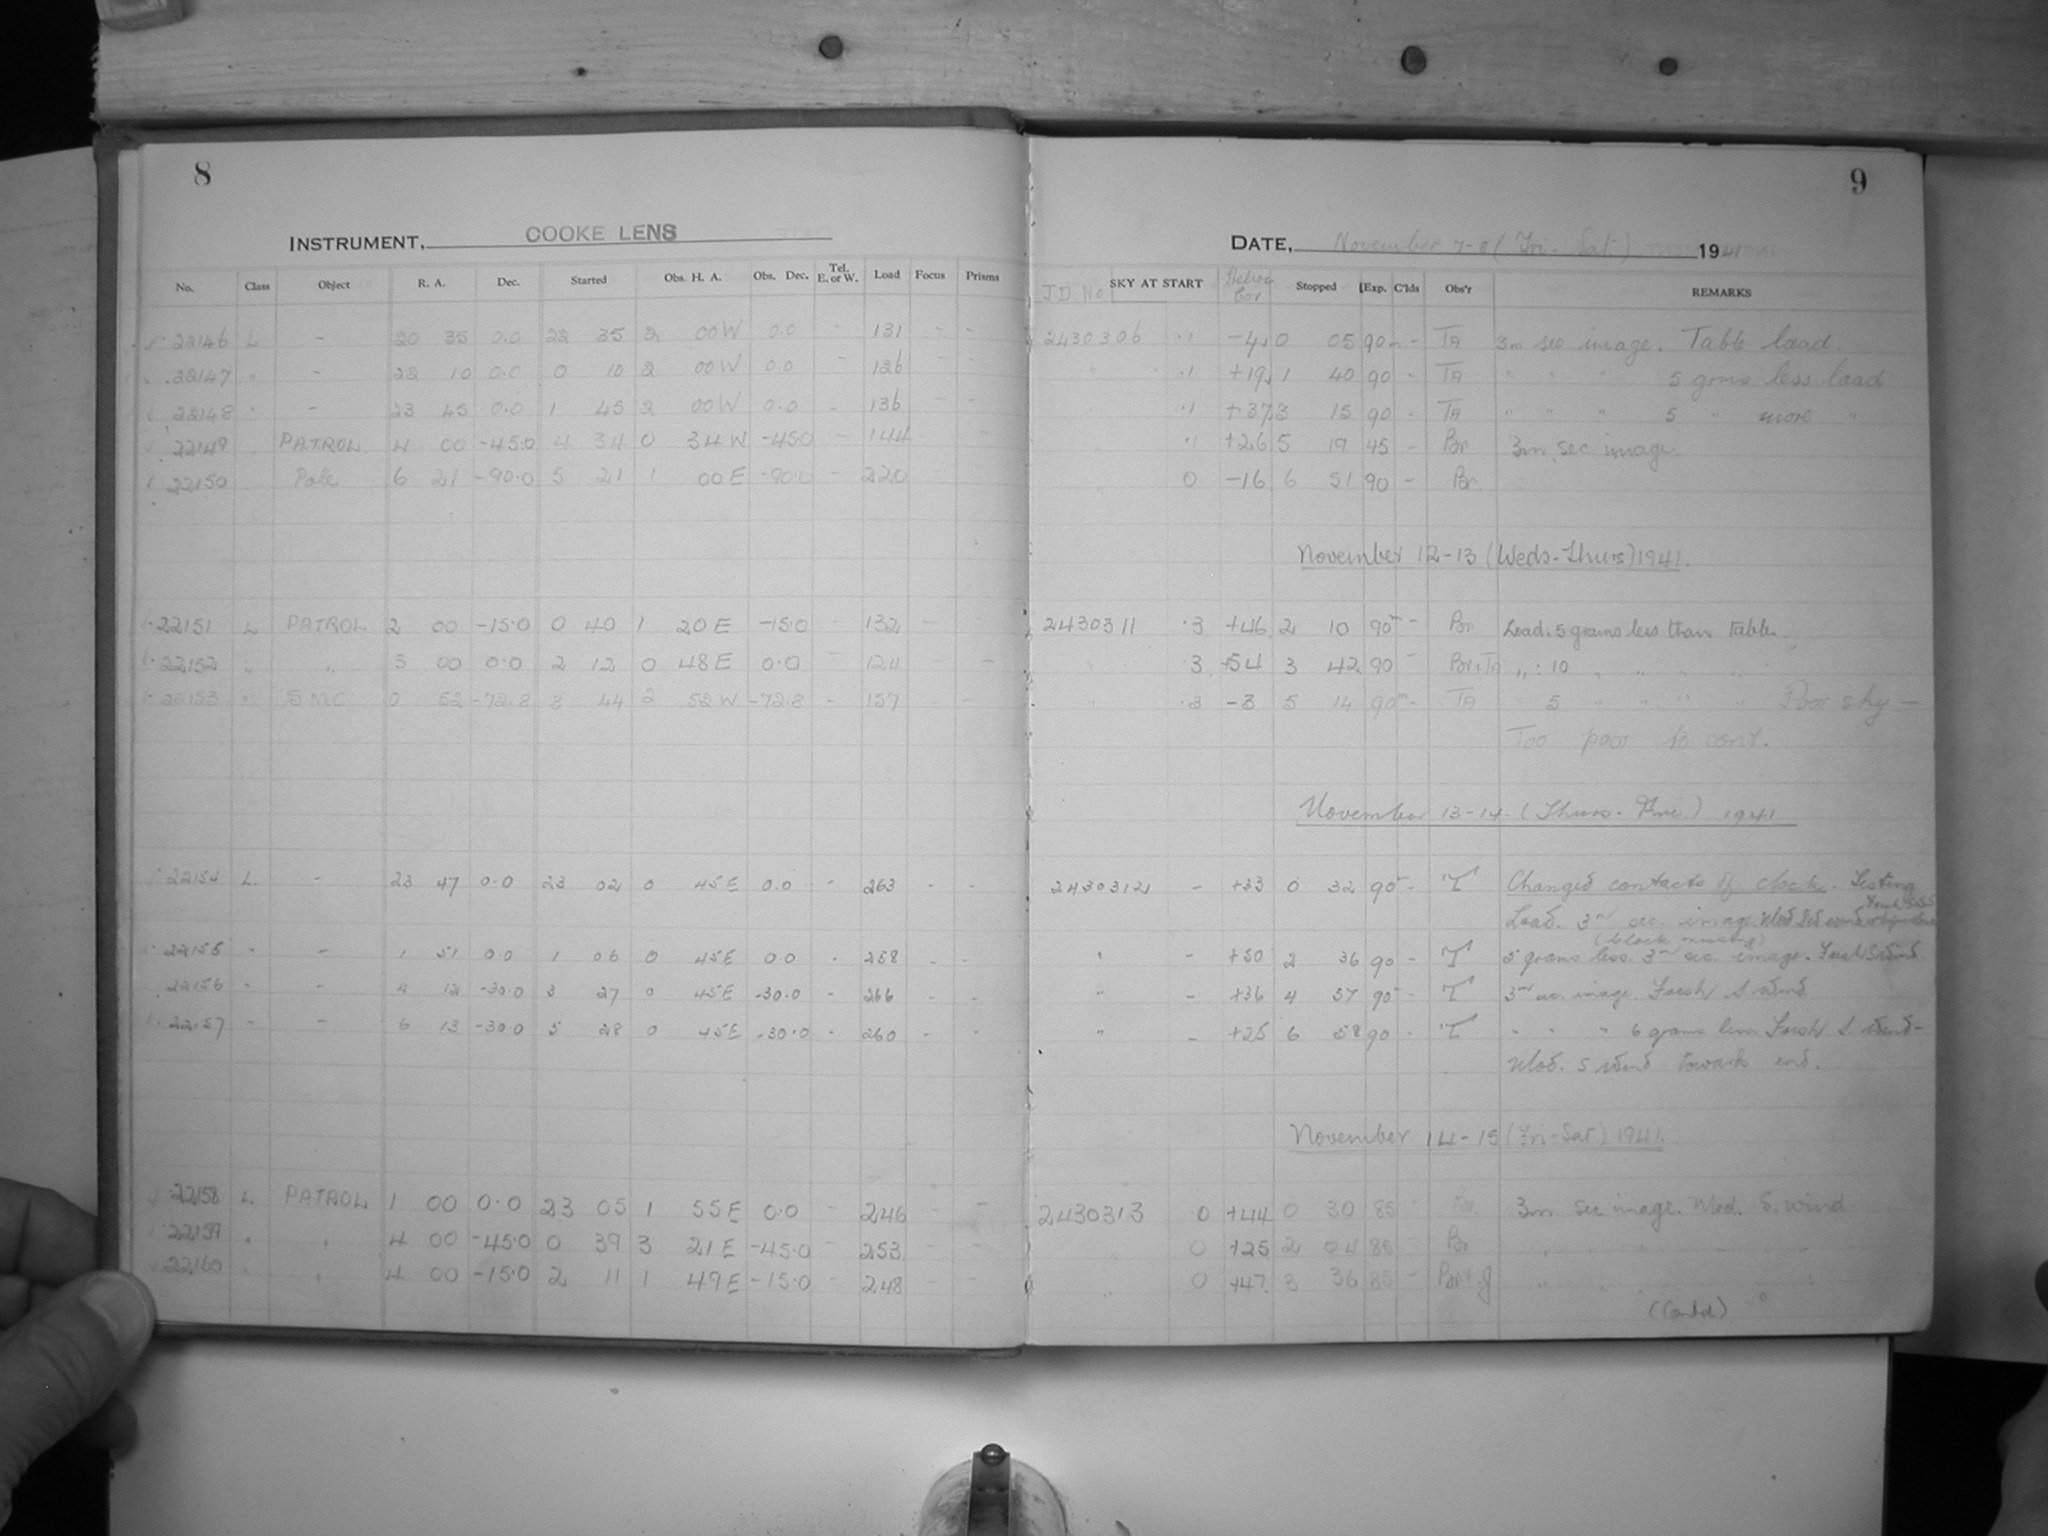 8
INSTRUMENT, COOKE LENS
No. Class Object R. A. Dec. Started Obs. H. A. Obs. Dec. Tel. E. or W. Load Focus Prisms
22146 L - 20 35 0.0 22 35 2 00W 0.0 - 131 - -
22147 " - 22 10 0.0 0 10 2 00W 0.0 - 126 - -
22148 " - 23 45 0.0 1 45 2 00W 0.0 - 136 - -
22149 PATROL 4 00 -45.0 4 34 0 34W -45.0 - 144 - -
22150 Pole 6 21 -90.0 5 21 1 00E -90.0 - 220
22151 L PATROL 2 00 -15.0 0 40 1 20E -15.0 - 132 - -
22152 " " 3 00 0.0 2 12 0 48E 0.0 - 124 - -
22153 " SMC 0 52 -72.8 3 44 2 52W -72.8 - 157 - -
22154 L. - 23 47 0.0 23 02 0 45E 0.0 - 263 - -
22155 " - 1 51 0.0 1 06 0 45E 0.0 - 258 - -
22156 " - 4 12 -30.0 3 27 0 45E -30.0 - 266 - -
22157 " - 6 13 -30.0 5 28 0 45E -30.0 - 260 - -
22158 L PATROL 1 00 0.0 23 05 1 55E 0.0 - 246 - -
22159 " " 4 00 -45.0 0 39 3 21E -45.0 - 253 - -
22160 " " 4 00 -15.0 2 11 1 49E -15.0 - 248 - -
9
DATE, November 7-8 (Fri. Sat) 1941
JD No SKY AT START Helioc Cor Stopped Exp. C'lds Obs'r REMARKS
2430306 .1 -4 0 05 90m - TA 3m sec image. Table load.
" .1 +19 1 40 90 - TA " " " 5 grms less load
.1 +37 3 15 90 - TA " " " 5 " more "
" .1 +26 5 19 45 - Br 3m sec image
0 -16 6 51 90 - Br.
November 12-13 (Weds-Thurs) 1941.
2430311 .3 +46 2 10 90m - Br Load: 5 grams less than Table.
" .3 +54 3 42 90 - Br+TA ": 10 " " " "
" .3 -3 5 14 90m - TA " 5 " " " " Poor sky -
Too poor to cont.
November 13-14. (Thurs-Fri) 1941
2430312 - +33 0 32 90 - T Changed contacts of clock. Testing
Load. 3m sec. image. Mod SE wind
" - +30 2 36 90 - T 5 grams less. 3m sec. image. Fresh S wind
" - +36 4 57 90 - T 3m sec. image. Fresh S wind
" - +25 6 58 90 - T " " " 6 grams less Fresh S. wind-
Mod. S wind towards end.
November 14-15 (Fri-Sat) 1941.
2430313 0 +44 0 30 85 - Br. 3m sec image. Mod. S. wind
" 0 +25 2 04 85 - Br " " " " " "
" 0 +47 3 36 85 - Br+J " " " " " "
(Contd)